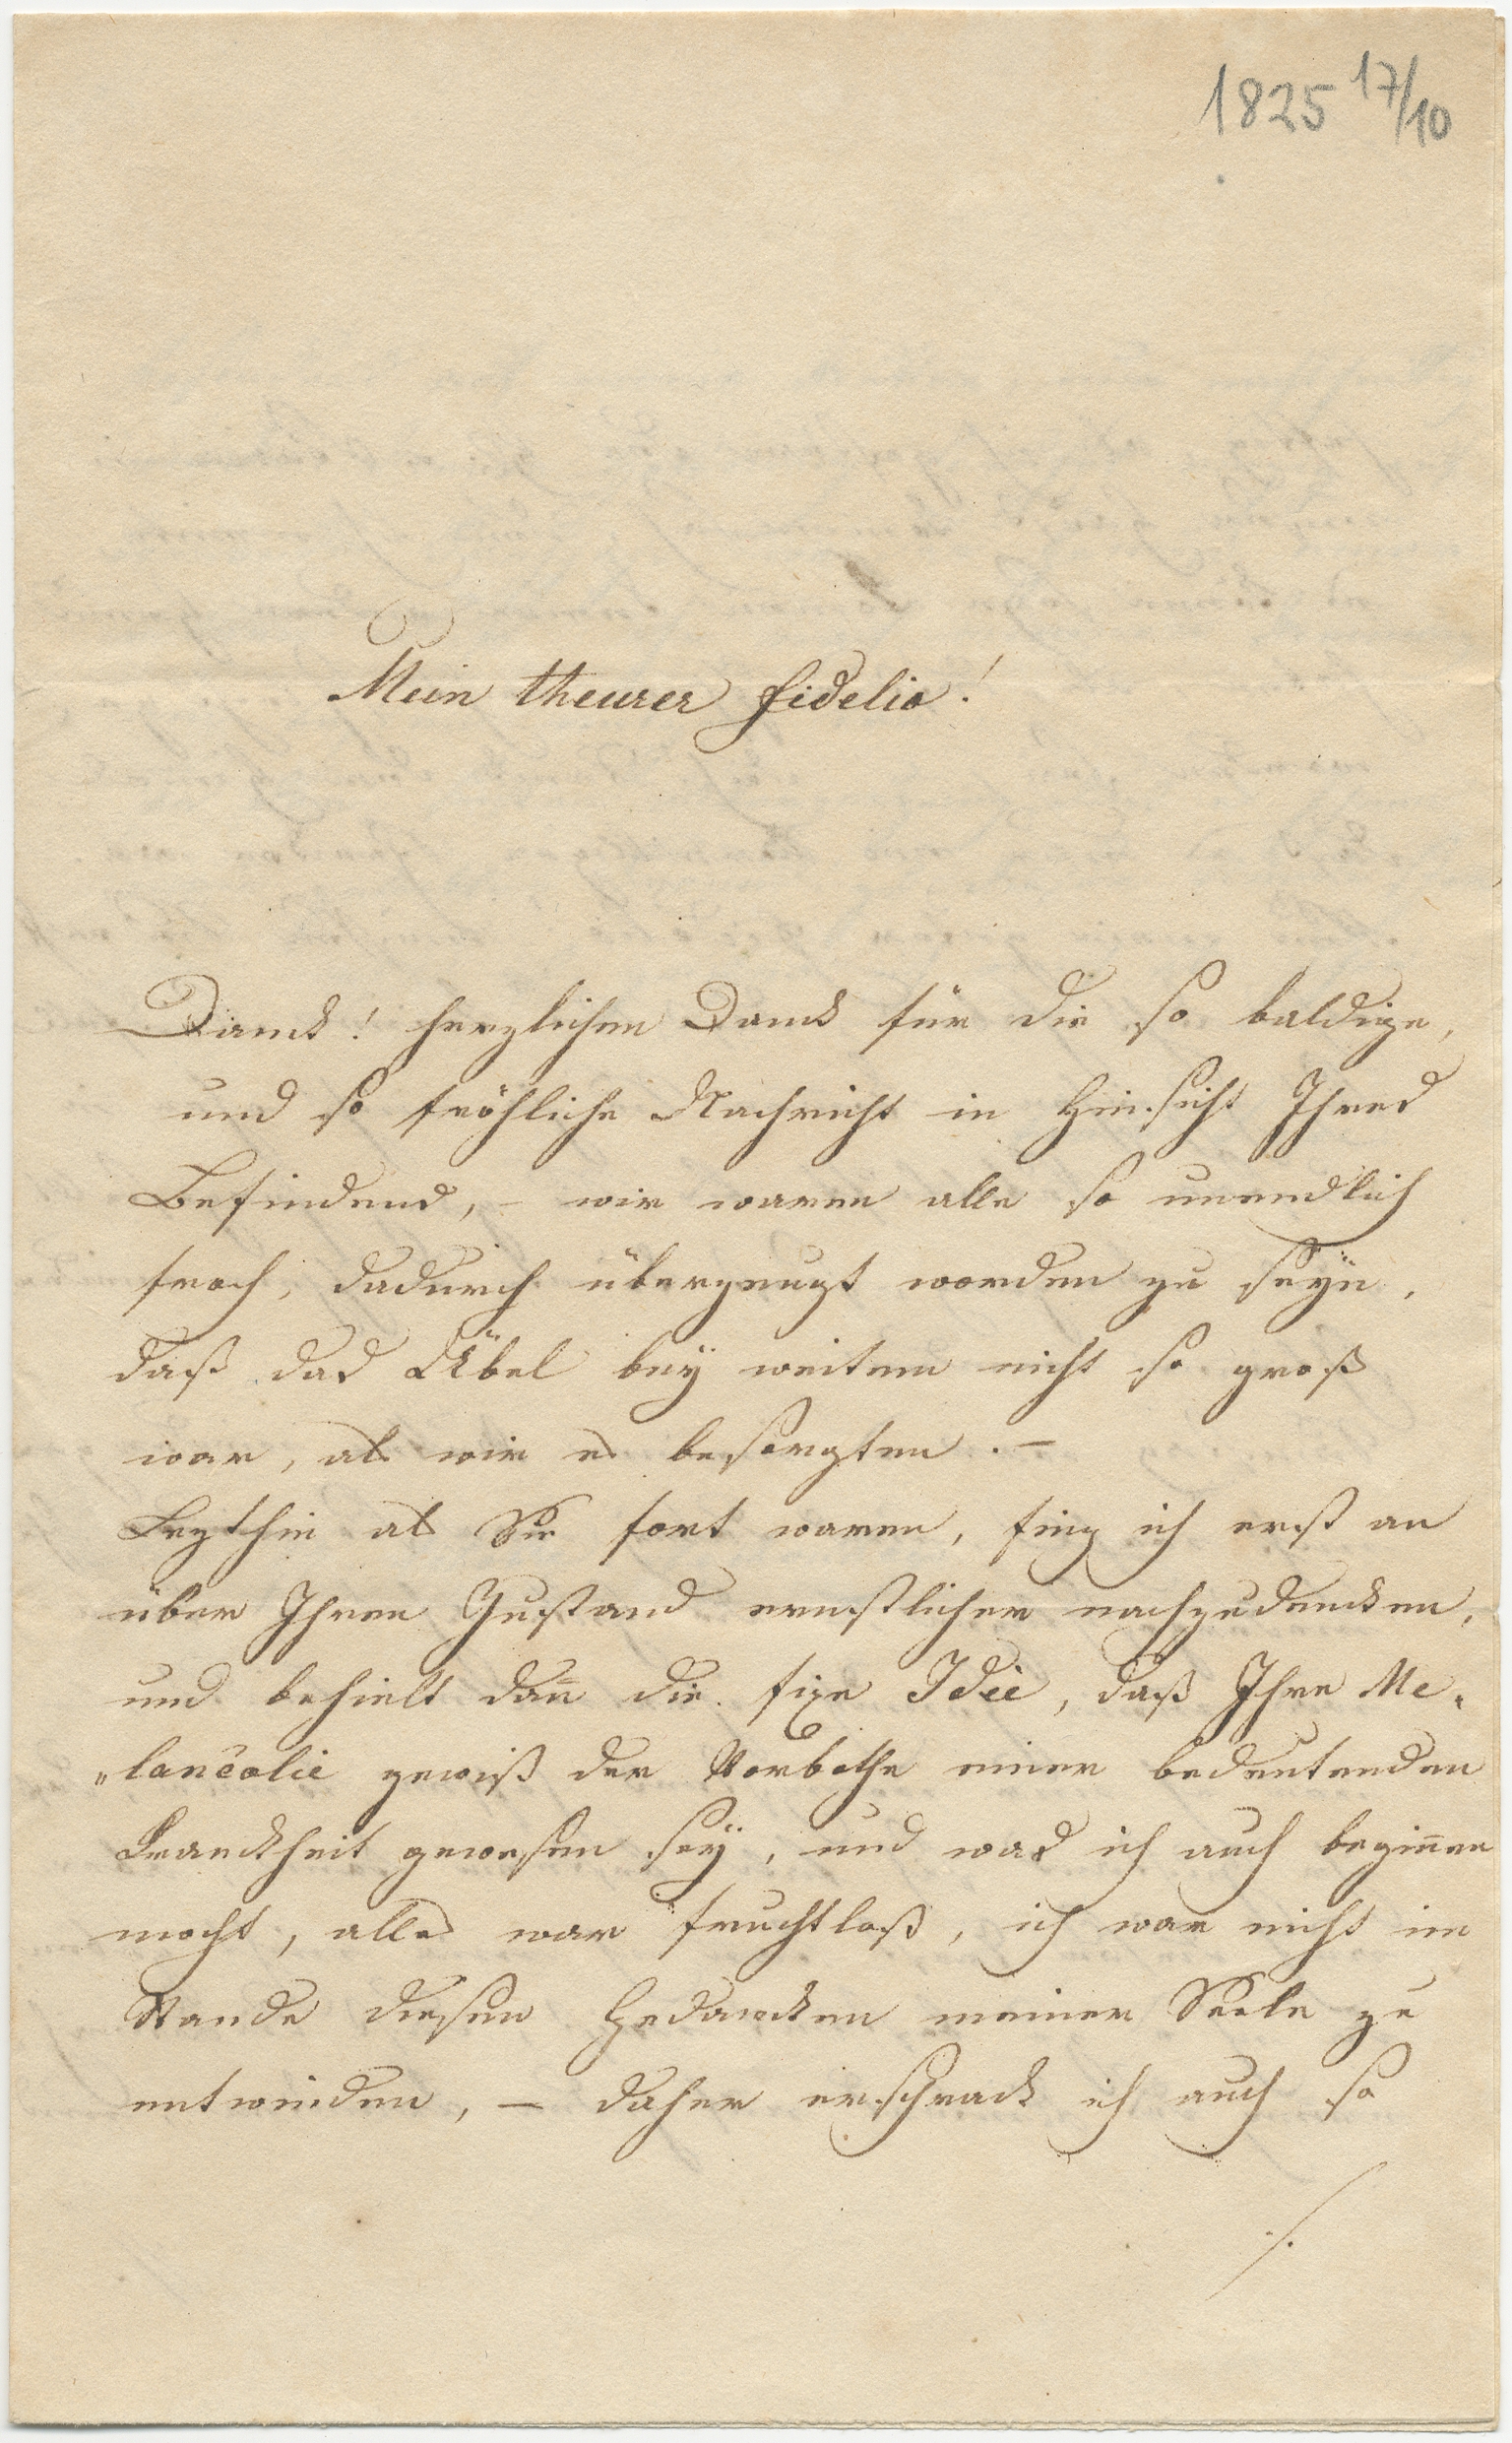 1825 17/10
Mein theurer Fidelio!
Danck! herzlichen Danck für die so baldige,
und so fröhliche Nachricht in Hinsicht Ihres
Befindens, – wir waren alle so unendlich
froh, dadurch überzeugt worden zu seÿn,
daß das Übel beÿ weitem nicht so groß
war, als wir es besorgten. –
Letzthin als Sie fort waren, fing ich erst an
über Ihren Zustand ernstlicher nachzudencken,
und behielt dan̄ die fixe Idée, daß Ihre Me„
„lancolie gewiß der Vorbothe einer bedeutenden
Kranckheit gewesen seÿ, und was ich auch begin̄en
mocht, alles war fruchtloß, ich war nicht im
Stande diesen Gedancken meiner Seele zu
entwinden, – daher erschrack ich auch so
./.